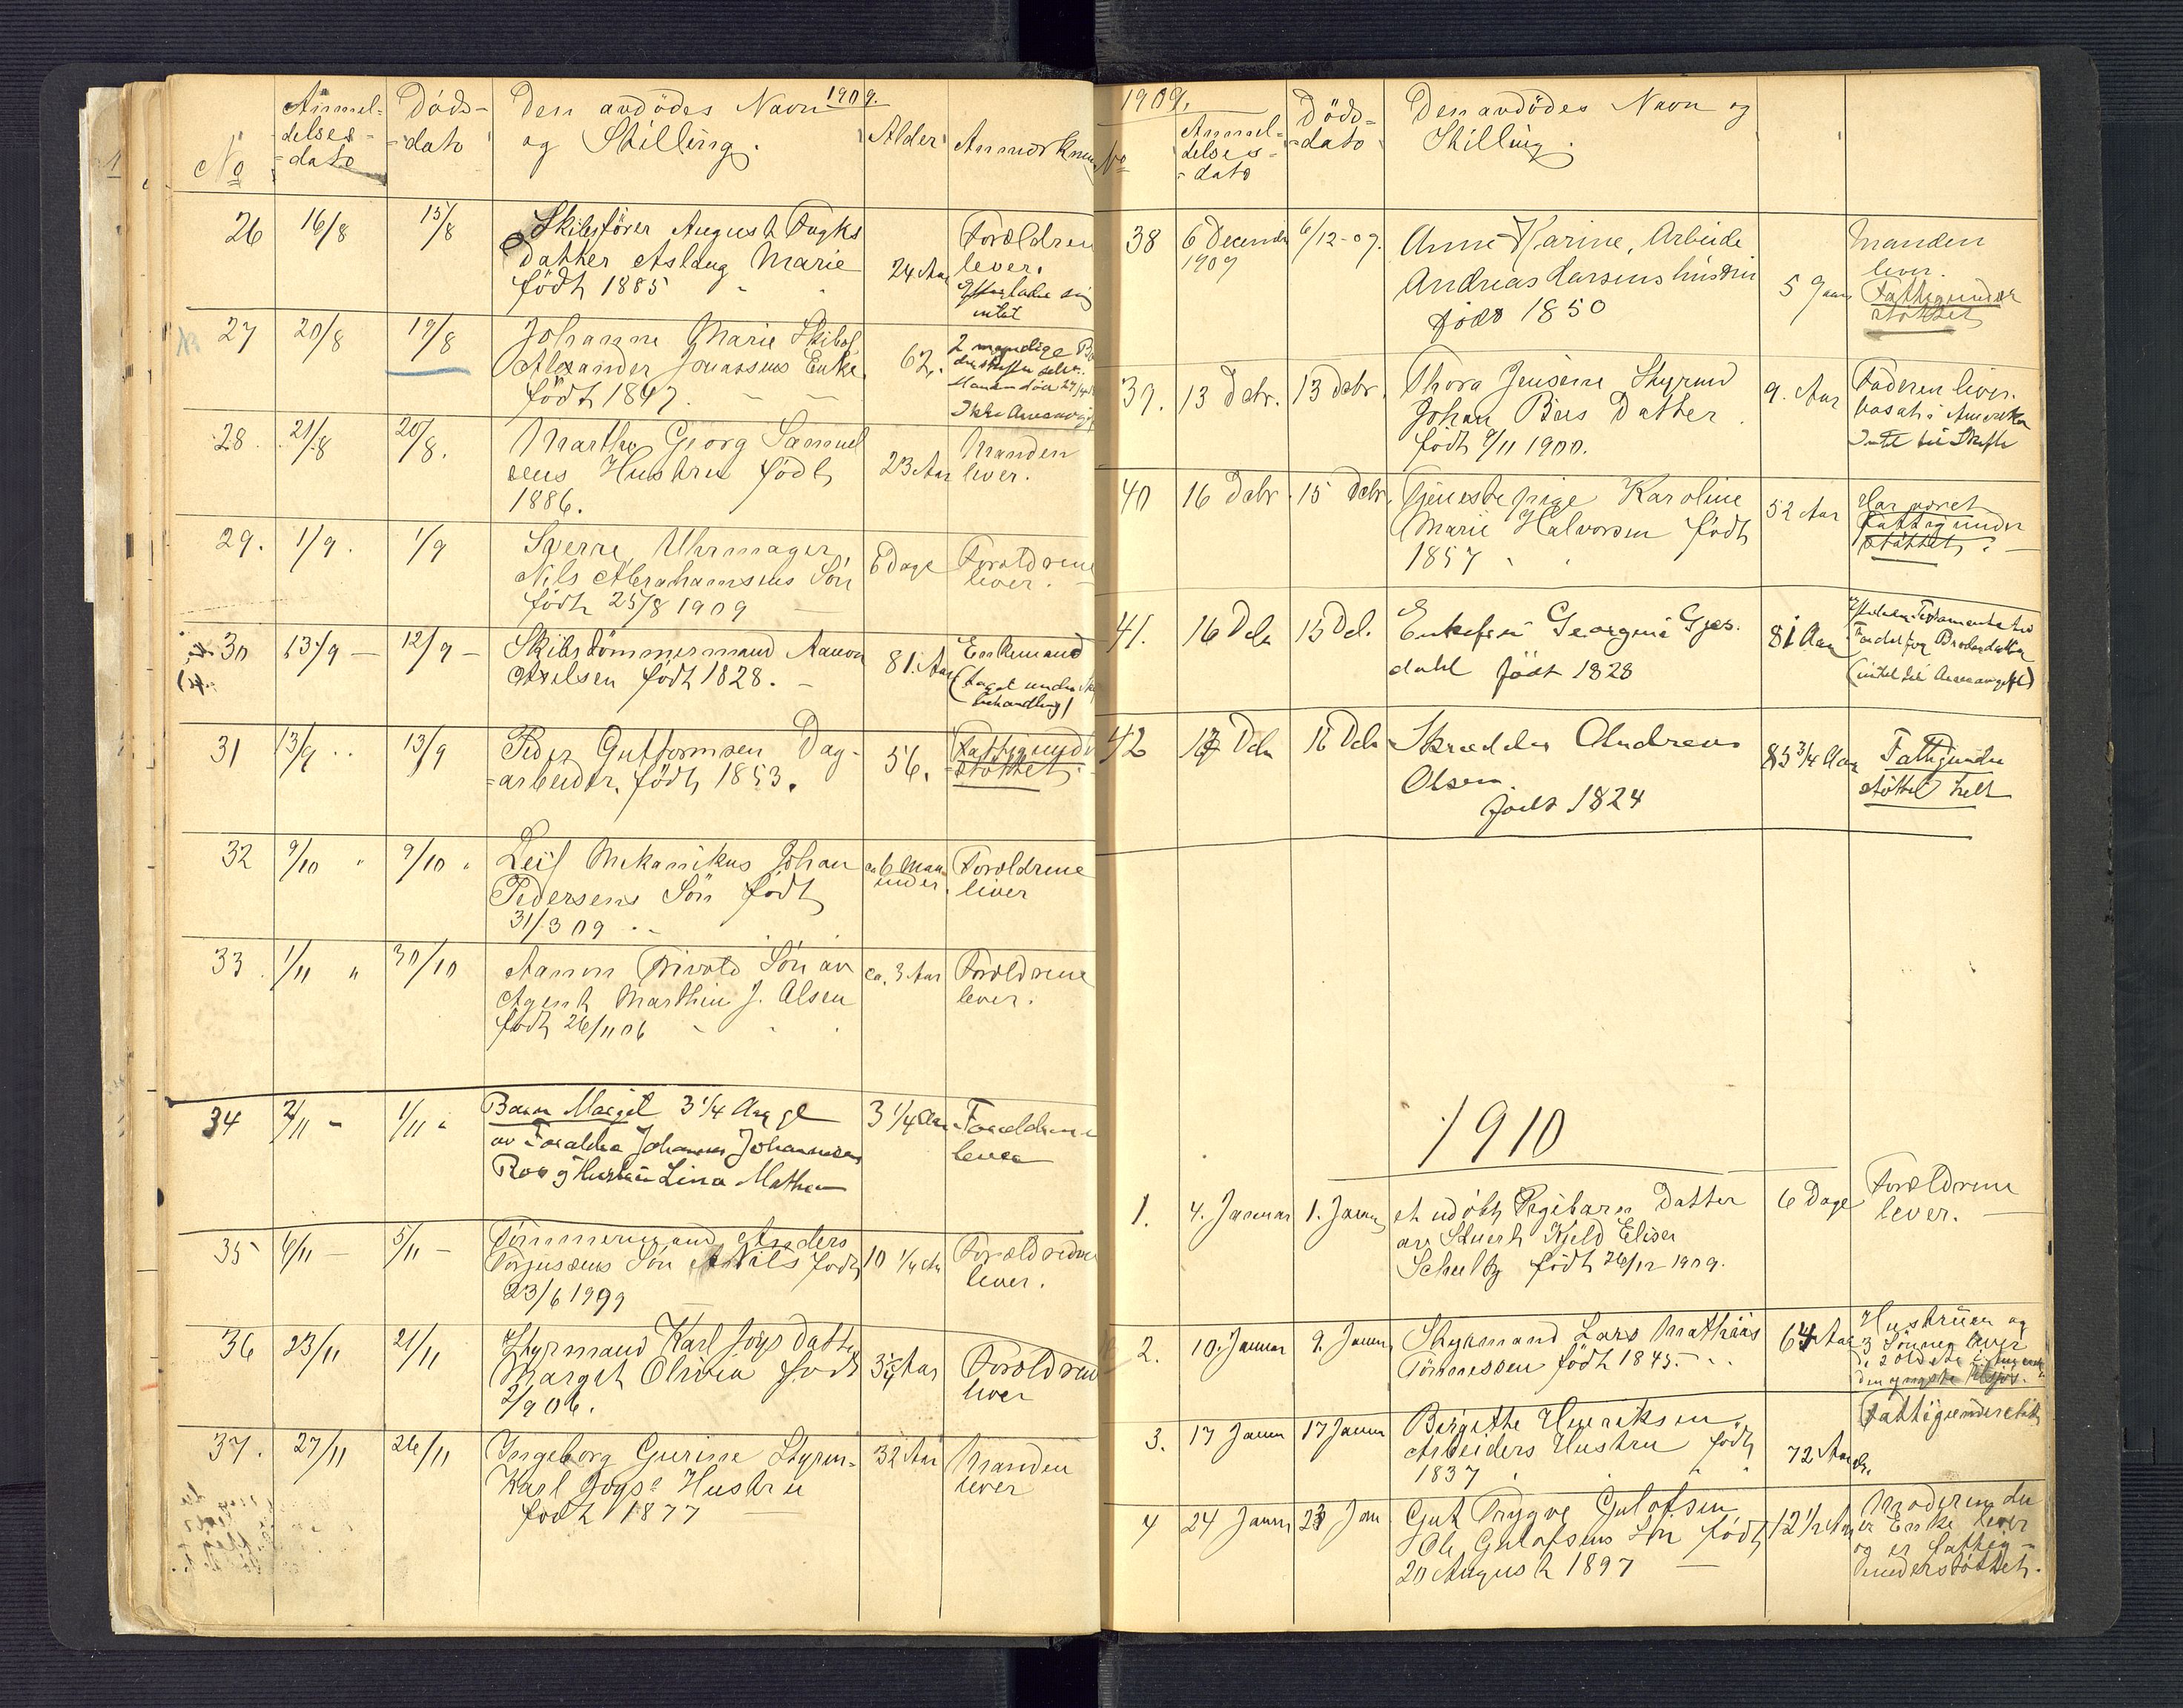 1909.
No
Anmel-
delses-
dato
Döds-
dato
Den avdödes Navn
og Stilling.
Alder
Anmærkn
26 16/8 15/8 Skibsförer August Fugks
Datter Aslaug Marie
födt 1885
24 Aar
Forældren
lever.
intet
27 20/8 19/8 Johanne Marie Skibsf
Alexander Jonassens Enke
födt 1847.
62.
2 myndige
28 21/8 20/8. Marthe Georg Samuel
sens Hustru födt
1886.
23 Aar
Manden
lever.
29. 1/9. 1/9 Sverre, Uhrmager
Nils Abrahamsens Sön
födt 25/8 1909
6 Dage
Forældrene
lever.
30 13/9 12/9 Skibstömmermand Aanon
Axelsen födt 1828.
81. Aar
Enkemand
(taget under
behandling)
31 13/9 13/9 Peder Guttormsen Dag-
arbeider. födt 1853.
56.
Fattigund
støttet.
32 9/10 9/10 Leif Mekanikus Johan
Pedersens Sön födt
31/3 09
ca 6 Maa
neder.
Forældrene
lever
33 1/11 30/10 Aanon Trivold Sön av
Agent Marthin J. Olsen
födt 26/11 06
ca. 3 Aar
Forældrene
lever.
34 2/11 1/11 Barn Margit 3 1/4 Aar gl
av Forældre Johannes Johannesen
Roe og Hustru Lina Mathea
3 1/4 Aar
Forældrene
lever
35 6/11 5/11 Tömmermand Anders
Torjussens Sön Nils födt
23/6 1999
10 1/4 Aar
Forældrene
lever.
36 23/11 21/11 Styrmand Karl Joys datter
Margit Olivia født
2/9 06.
3 1/4 Aar
Forældrene
lever
37. 27/11 26/11 Ingeborg Gurine Styrm-
Karl Joys' Hustru
født 1877
32 Aar
Manden
lever
1909.
No
Anmel-
delses-
dato
Döds-
dato
Den avdödes Navn og
Stilling.
38 6 Decemb
1909
6/12-09. Anne Karine, Arbeide
Andreas Larsens hustru
föd 1850
59 aar
Manden
lever.
Fattigunder
støttet
39. 13 Dcbr. 13 Dcbr. Thora Jensine Styrmd
Johan Bies Datter.
födt 9/11 1900.
9. Aar
Faderen lever.
bosat i Amerika
Intet til Skifte
40 16 Dcbr. 15 Dcbr. Tjenestepige Karoline
Marie Halvorsen födt
1857
52 Aar
Har været
Fattigunder
støttet.
41. 16 Dcbr 15 Dcbr. Enkefru Georgine Gjes.
dahl født 1828
81 Aar
(intet til Arveavgift)
42 17 Dcbr 16 Dcbr Skrædder Andreas
Olsen
født 1824
85 3/4 Aar
Fattigunder
støttet helt
1910
1. 4. Januar 1. Januar et udöbt Pigebarn Datter
av Stuert Kjeld Elisa
Schultz födt 26/12 1909.
6 Dage
Forældrene
lever.
2. 10. Januar 9. Januar Styrmand Lars Mathias
Tönnessen födt 1845.
64 Aar
Hustruen og
3 Sönner lever
de 2 ældste
den yngste
3. 17 Januar 17 Januar Birgithe Henriksen
Arbeiders Hustru født
1837
72 Aar
Fattigunderstøt
4 24 Januar 23 Jan Gut Trygve Gulofsen
Ole Gulofsens Sön födt
20 August 1897
12 1/2 Aar
Moderen der
er Enke lever
og er fattig-
understöttet.